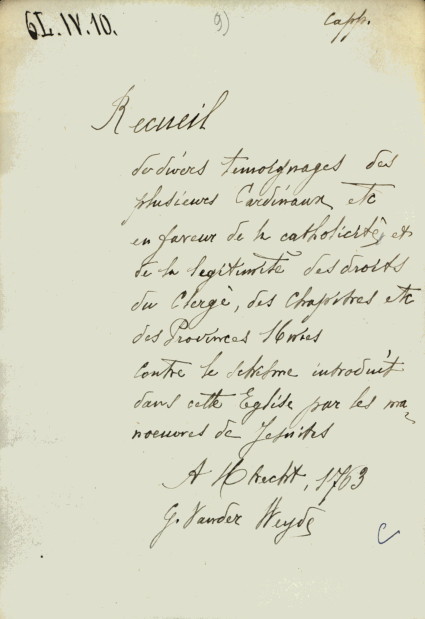 6L.IV.10.
9)
Capp.
Recueil
de divers temoignages des
plusieurs Cardinaux etc
en faveur de la catholicité et
de la legitimité des droits
du Clergé, des chapitres etc
des Provinces Unies
contre le schisme introduit
dans cette Eglise par les ma-
noeuvres de Jesuites
A Utrecht, 1763
G. Vander Weyde